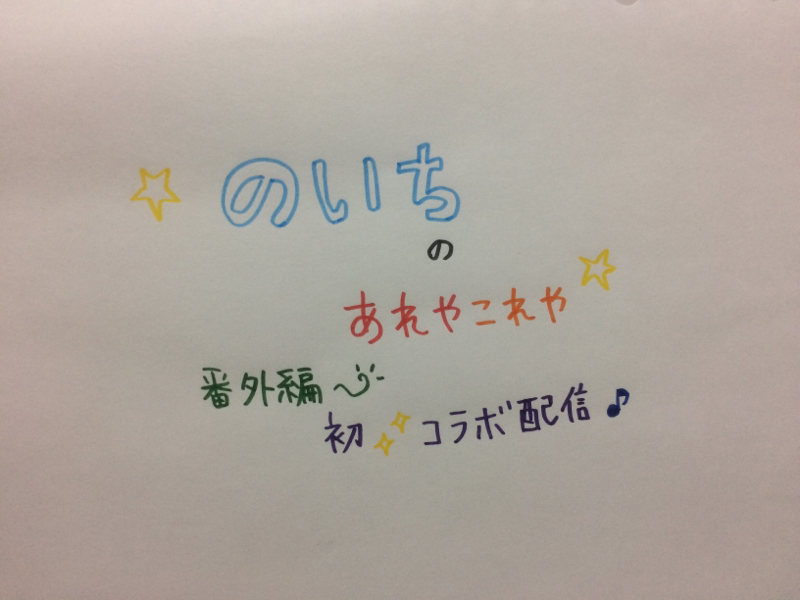 のいち
の
あれやこれや
番外編
初 コラボ配信♪